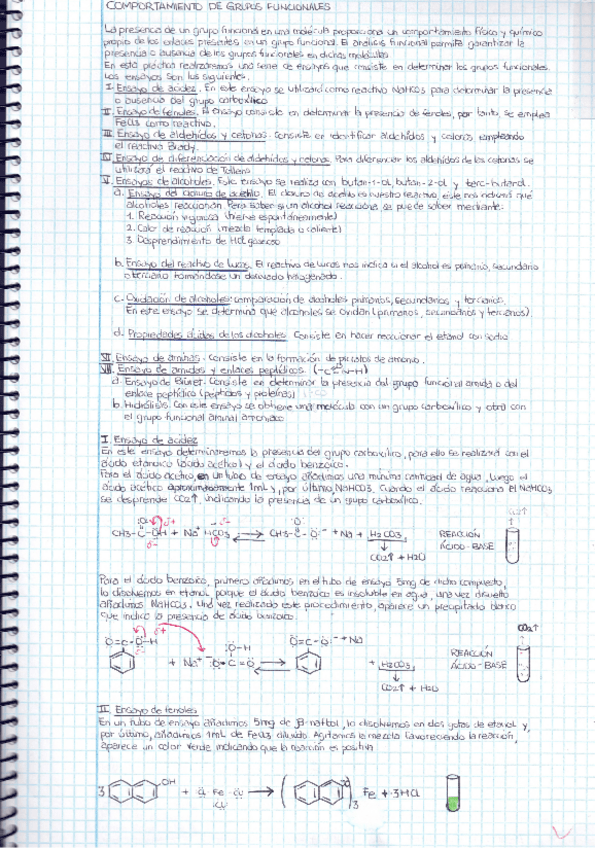 COMPORTAMIENTO DE GRUPOS FUNCIONALES
La presencia de un grupo funcional en una molécula proporciona un comportamiento físico y químico
propio de los enlaces presentes en un grupo funcional. El análisis funcional permite garantizar la
presencia o ausencia de los grupos funcionales en dichas moléculas
En esta práctica realizaremos una serie de ensayos que consiste en determinar los grupos funcionales.
Los ensayos son los siguientes.
I. Ensayo de acidez. En este ensayo se utilizará como reactivo NaHCO3 para determinar la presencia
o ausencia del grupo carboxílico
II. Ensayo de fenoles. El ensayo consiste en determinar la presencia de fenoles, por tanto, se emplea
FeCl3 como reactivo.
III. Ensayo de aldehídos y cetonas. Consiste en identificar aldehídos y cetonas empleando
el reactivo Brady.
IV. Ensayo de diferenciación de aldehídos y cetonas. Para diferenciar los aldehídos de las cetonas se
utilizará el reactivo de Tollens
V. Ensayos de alcoholes. Este ensayo se realiza con butan-1-ol, butan-2-ol y terc-butanol.
a. Ensayo del cloruro de acetilo. El cloruro de acetilo es nuestro reactivo, éste nos indicará que
alcoholes reaccionan. Para saber si un alcohol reacciona, se puede saber mediante:
1. Reacción vigorosa (hierve espontáneamente)
2. Calor de reacción (mezcla templada o caliente)
3. Desprendimiento de HCl gaseoso
b. Ensayo del reactivo de Lucas. El reactivo de Lucas nos indica si el alcohol es primario, secundario
o terciario formándose un derivado halogenado.
c. Oxidación de alcoholes: comparación de alcoholes primarios, secundarios y terciarios.
En este ensayo se determina que alcoholes se oxidan (primarios, secundarios y terciarios).
d. Propiedades ácidas de los alcoholes. Consiste en hacer reaccionar el etanol con sodio
VI. Ensayo de aminas. Consiste en la formación de picratos de amonio.
VII. Ensayo de amidas y enlaces peptídicos. (-C-N-H)
a. Ensayo de Biuret. Consiste en determinar la presencia del grupo funcional amida o del
enlace peptídico (péptidos y proteínas)
b. Hidrólisis. Con este ensayo se obtiene una molécula con un grupo carboxílico y otra con
el grupo funcional amina/amoniaco
I. Ensayo de acidez
En este ensayo determinaremos la presencia del grupo carboxílico, para ello se realizará con el
ácido etanoico (ácido acético) y el ácido benzoico.
Para el ácido acético, en un tubo de ensayo añadimos una mínima cantidad de agua, luego el
ácido acético aproximadamente 1ml y, por último, NaHCO3. Cuando el ácido reacciona el NaHCO3
se desprende CO2↑, indicando la presencia de un grupo carboxílico.
CO2↑
CH3-C-OH + Na+ HCO3 ⇌ CH3-C-O- +Na + H2CO3
REACCIÓN
ÁCIDO-BASE
CO2↑ + H2O
Para el ácido benzoico, primero añadimos en el tubo de ensayo 5mg de dicho compuesto,
lo disolvemos en etanol porque el ácido benzoico es insoluble en agua, una vez disuelto
añadimos NaHCO3. Una vez realizado este procedimiento, aparece un precipitado blanco
que indica la presencia de ácido benzoico.
CO2↑
O=C-O-H O=C-O- +Na
O-H
+ Na+ -O-C=O ⇌ + H2CO3
REACCIÓN
ÁCIDO-BASE
CO2↑ + H2O
II. Ensayo de fenoles
En un tubo de ensayo añadimos 5mg de β-naftol, lo disolvemos en dos gotas de etanol y,
por último, añadimos 1mL de FeCl3 diluido. Agitamos la mezcla favoreciendo la reacción,
aparece un color verde indicando que la reacción es positiva
3 OH + Cl Fe Cl → ( O )3 Fe + 3HCl
Cl